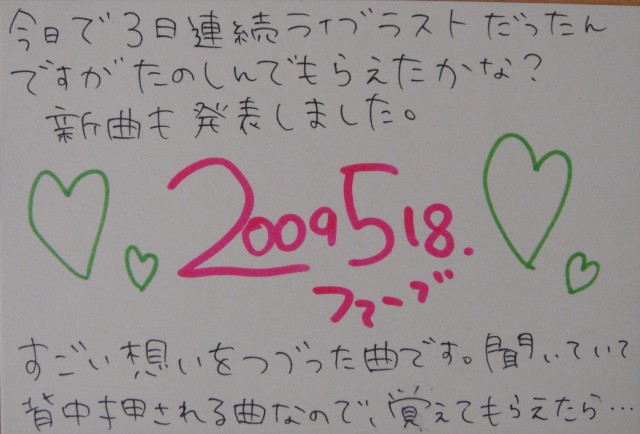 今日で3日連続ライブラストだったん
ですがたのしんでもらえたかな?
新曲も発表しました。
2009518.
ファーブ
すごい想いをつづった曲です。聞いていて
背中押される曲なので、覚えてもらえたら…